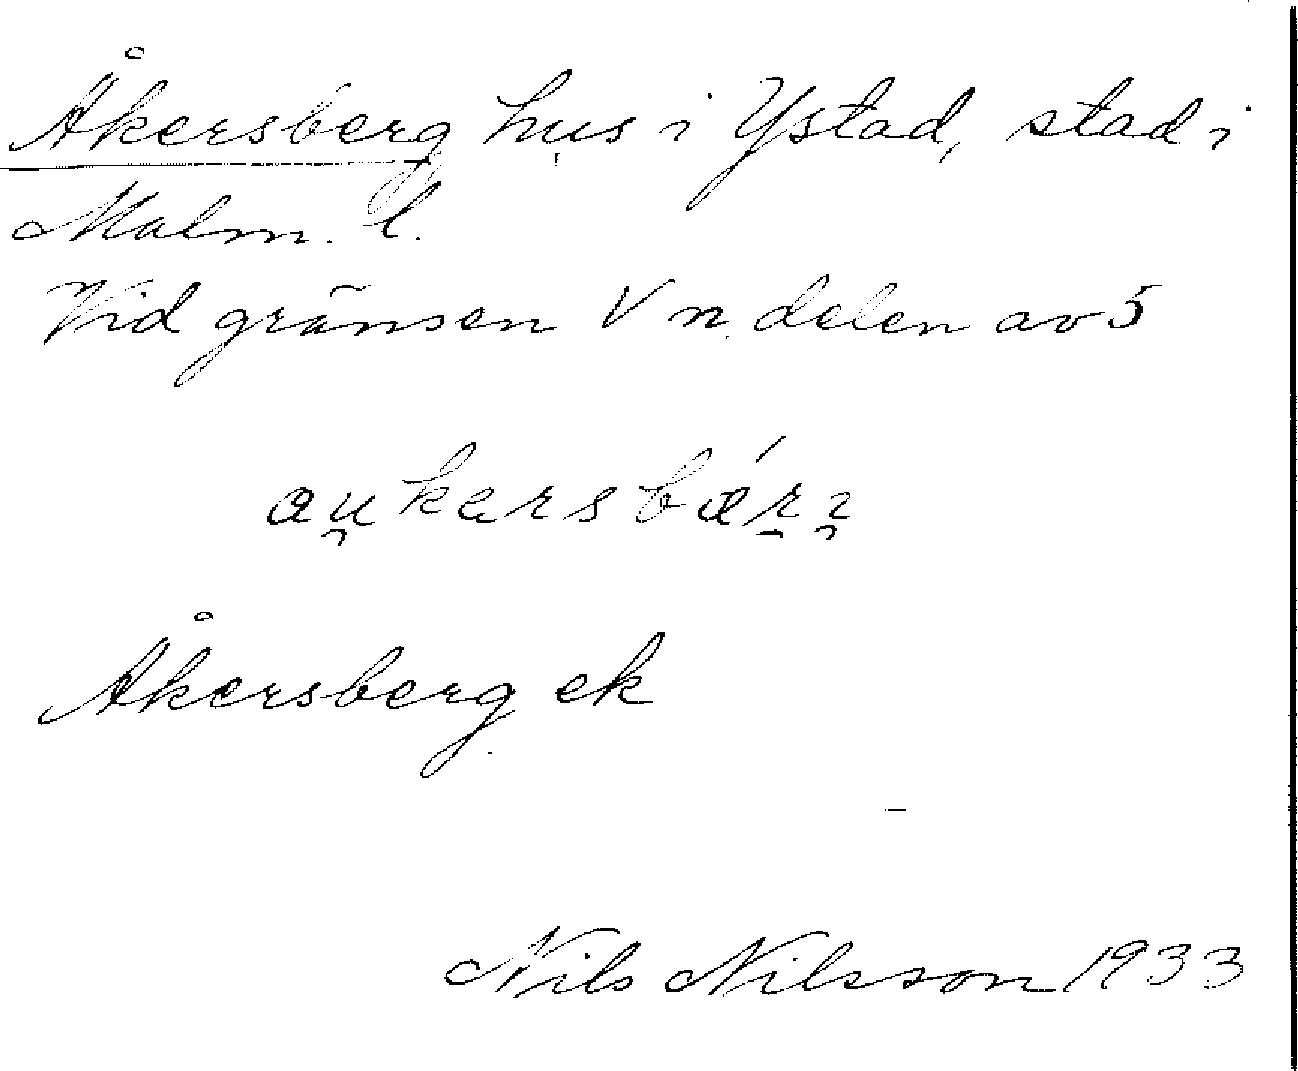 Åkersberg hus i Ystad, stad i
Malm. l.
Vid gränsen V n. delen av 5
Åkersberg ek
Nils Nilsson 1933